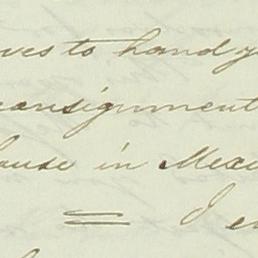 ves to hand y
consignment
ause in Mexi
= I en